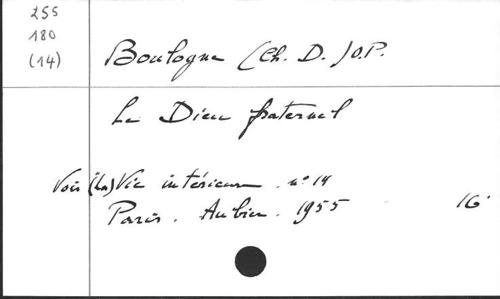 255
180
(14)
Boulogne (Ch. D.) O.P.
Le Dieu fraternel
Voir (La) Vie intérieure. n° 14
Paris. Aubin. 1955 16°